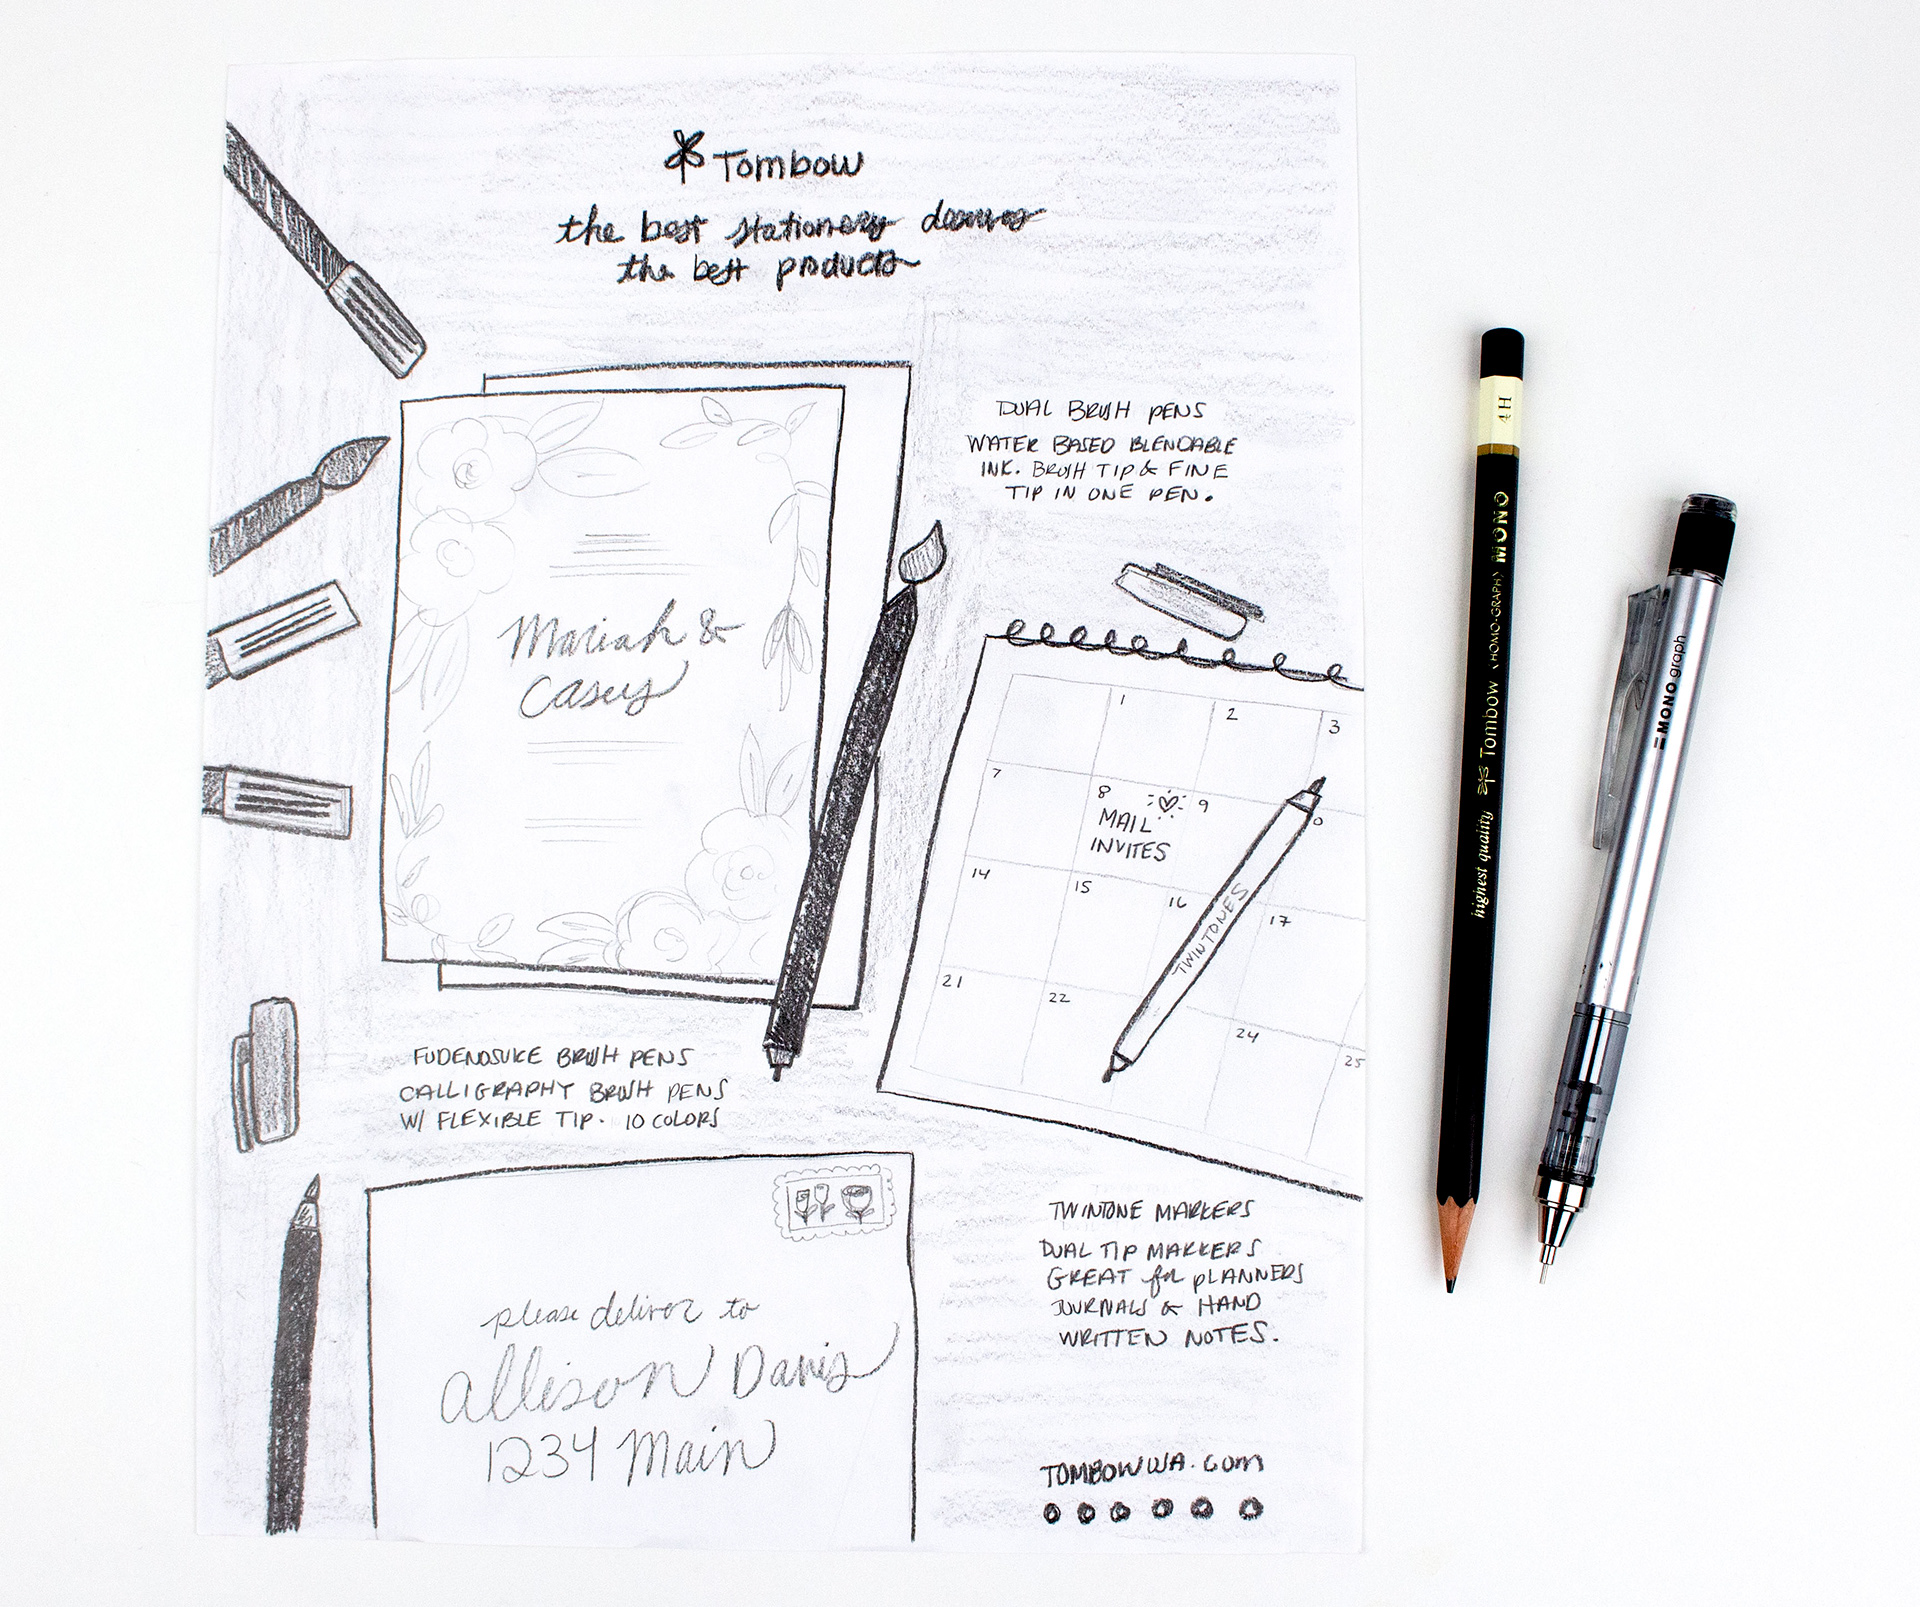 Tombow
the best stationery deserves
the best products
DUAL BRUSH PENS
WATER BASED BLENDABLE
INK. BRUSH TIP & FINE
TIP IN ONE PEN.
Mariah &
Casey
1 2 3
7 8 9
MAIL
INVITES
14 15 16 17
TWINTONES
21 22 24 25
FUDENOSUKE BRUSH PENS
CALLIGRAPHY BRUSH PENS
W/ FLEXIBLE TIP. 10 COLORS
please deliver to
Allison Davis
1234 Main
TWINTONE MARKERS
DUAL TIP MARKERS
GREAT for PLANNERS
JOURNALS & HAND
WRITTEN NOTES.
TOMBOWUSA.com
4H
highest quality Tombow <HOMO-GRAPH> MONO
MONO graph